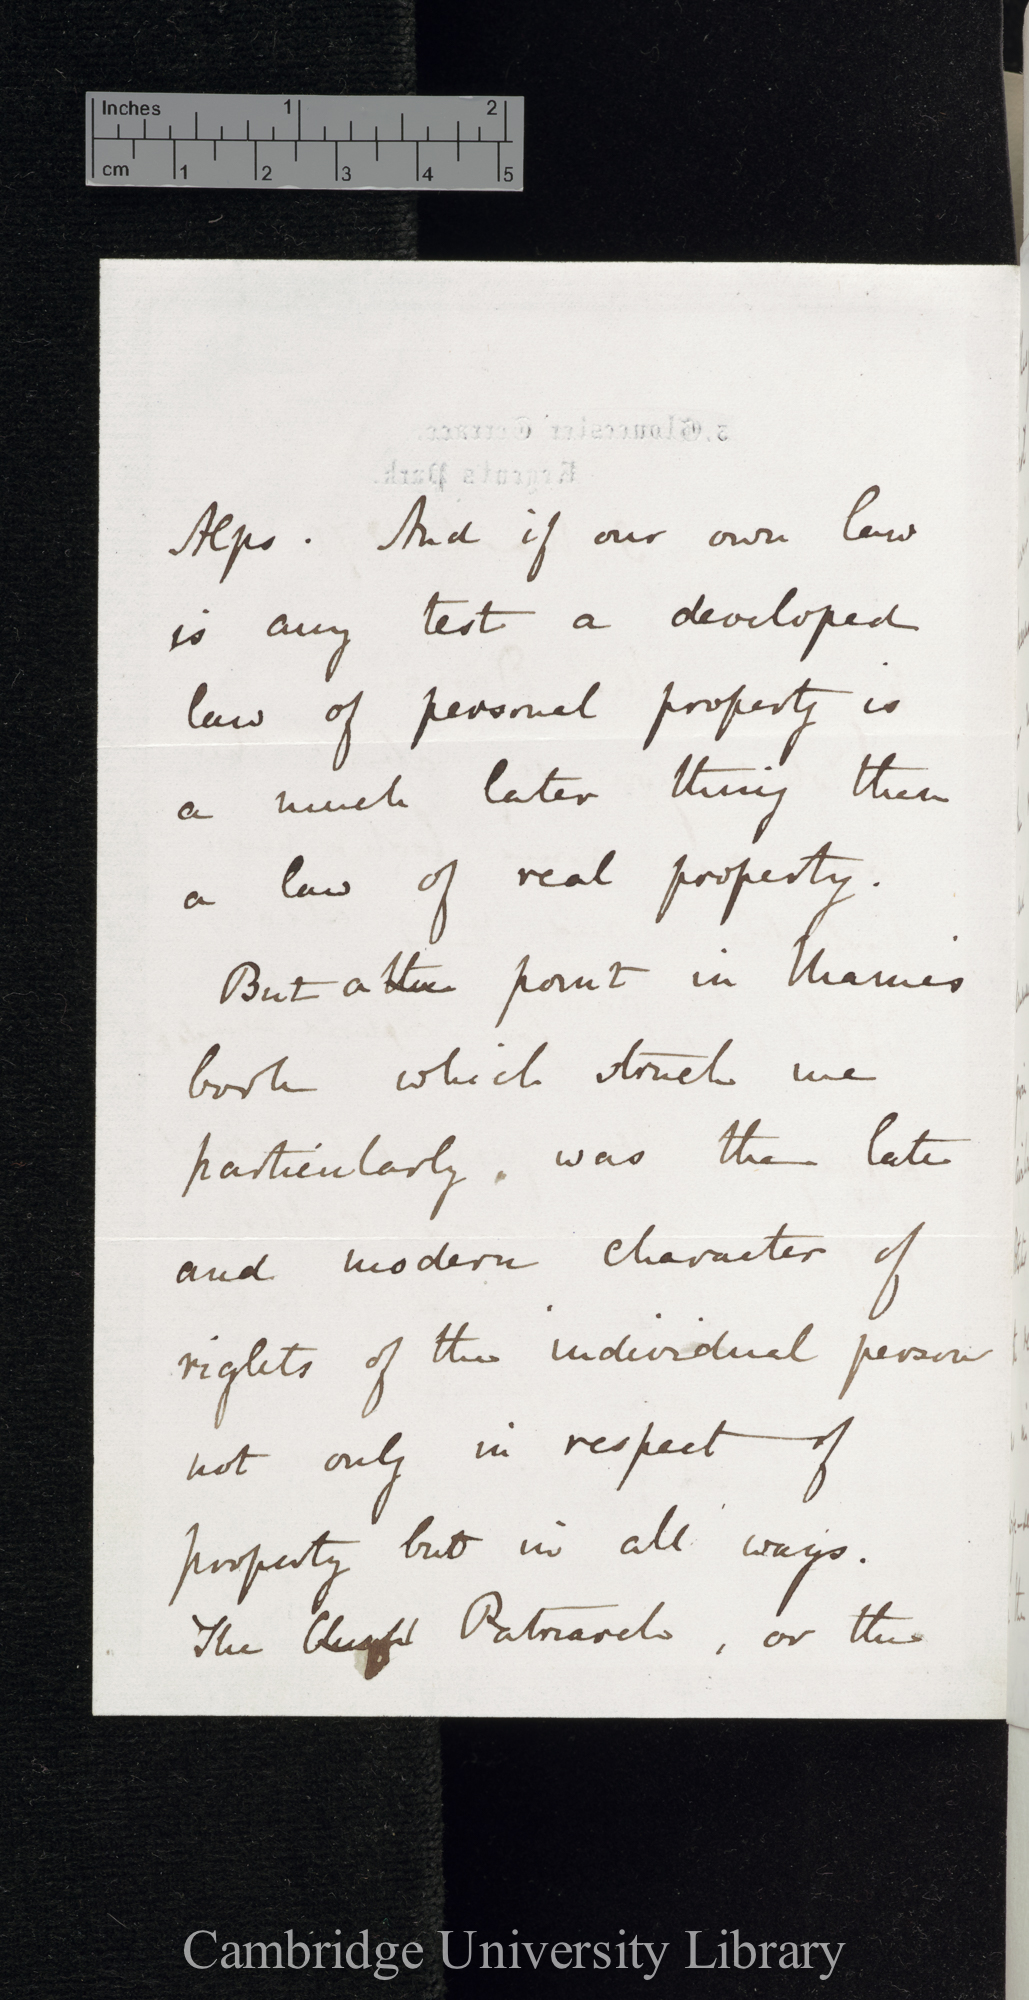 Inches 1 2
cm 1 2 3 4 5
3, Gloucester Terrace.
Regents Park.
Alps. And if our own law
is any test a developed
law of personal property is
a much later thing than
a law of real property.
But a the point in Maine's
book which struck me
particularly, was the late
and modern character of
rights of the individual person
not only in respect of
property but in all ways.
The Patriarch, or the
Cambridge University Library